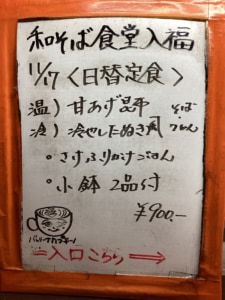 和そば食堂入福
11/17〈日替定食〉
温）甘あげ昆布 そば・うどん
冷）冷やしたぬき風
・さけふりかけごはん
・小鉢 2品付
¥900.-
＝入口こちら→